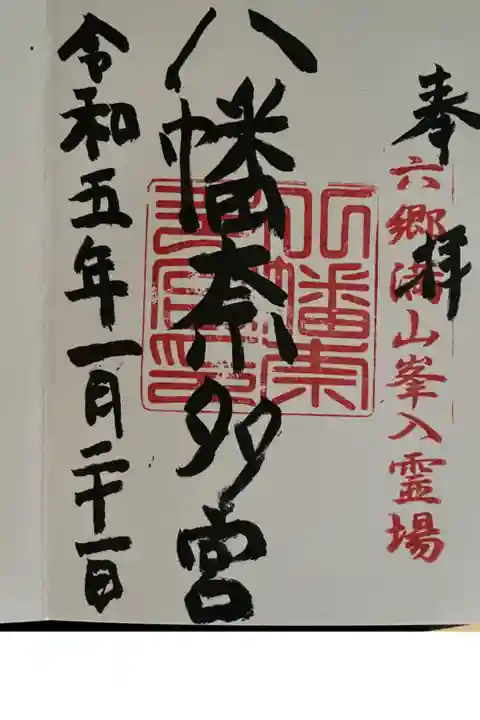 奉拝
六郷満山峯入霊場
八幡奈多宮
令和五年一月二十一日